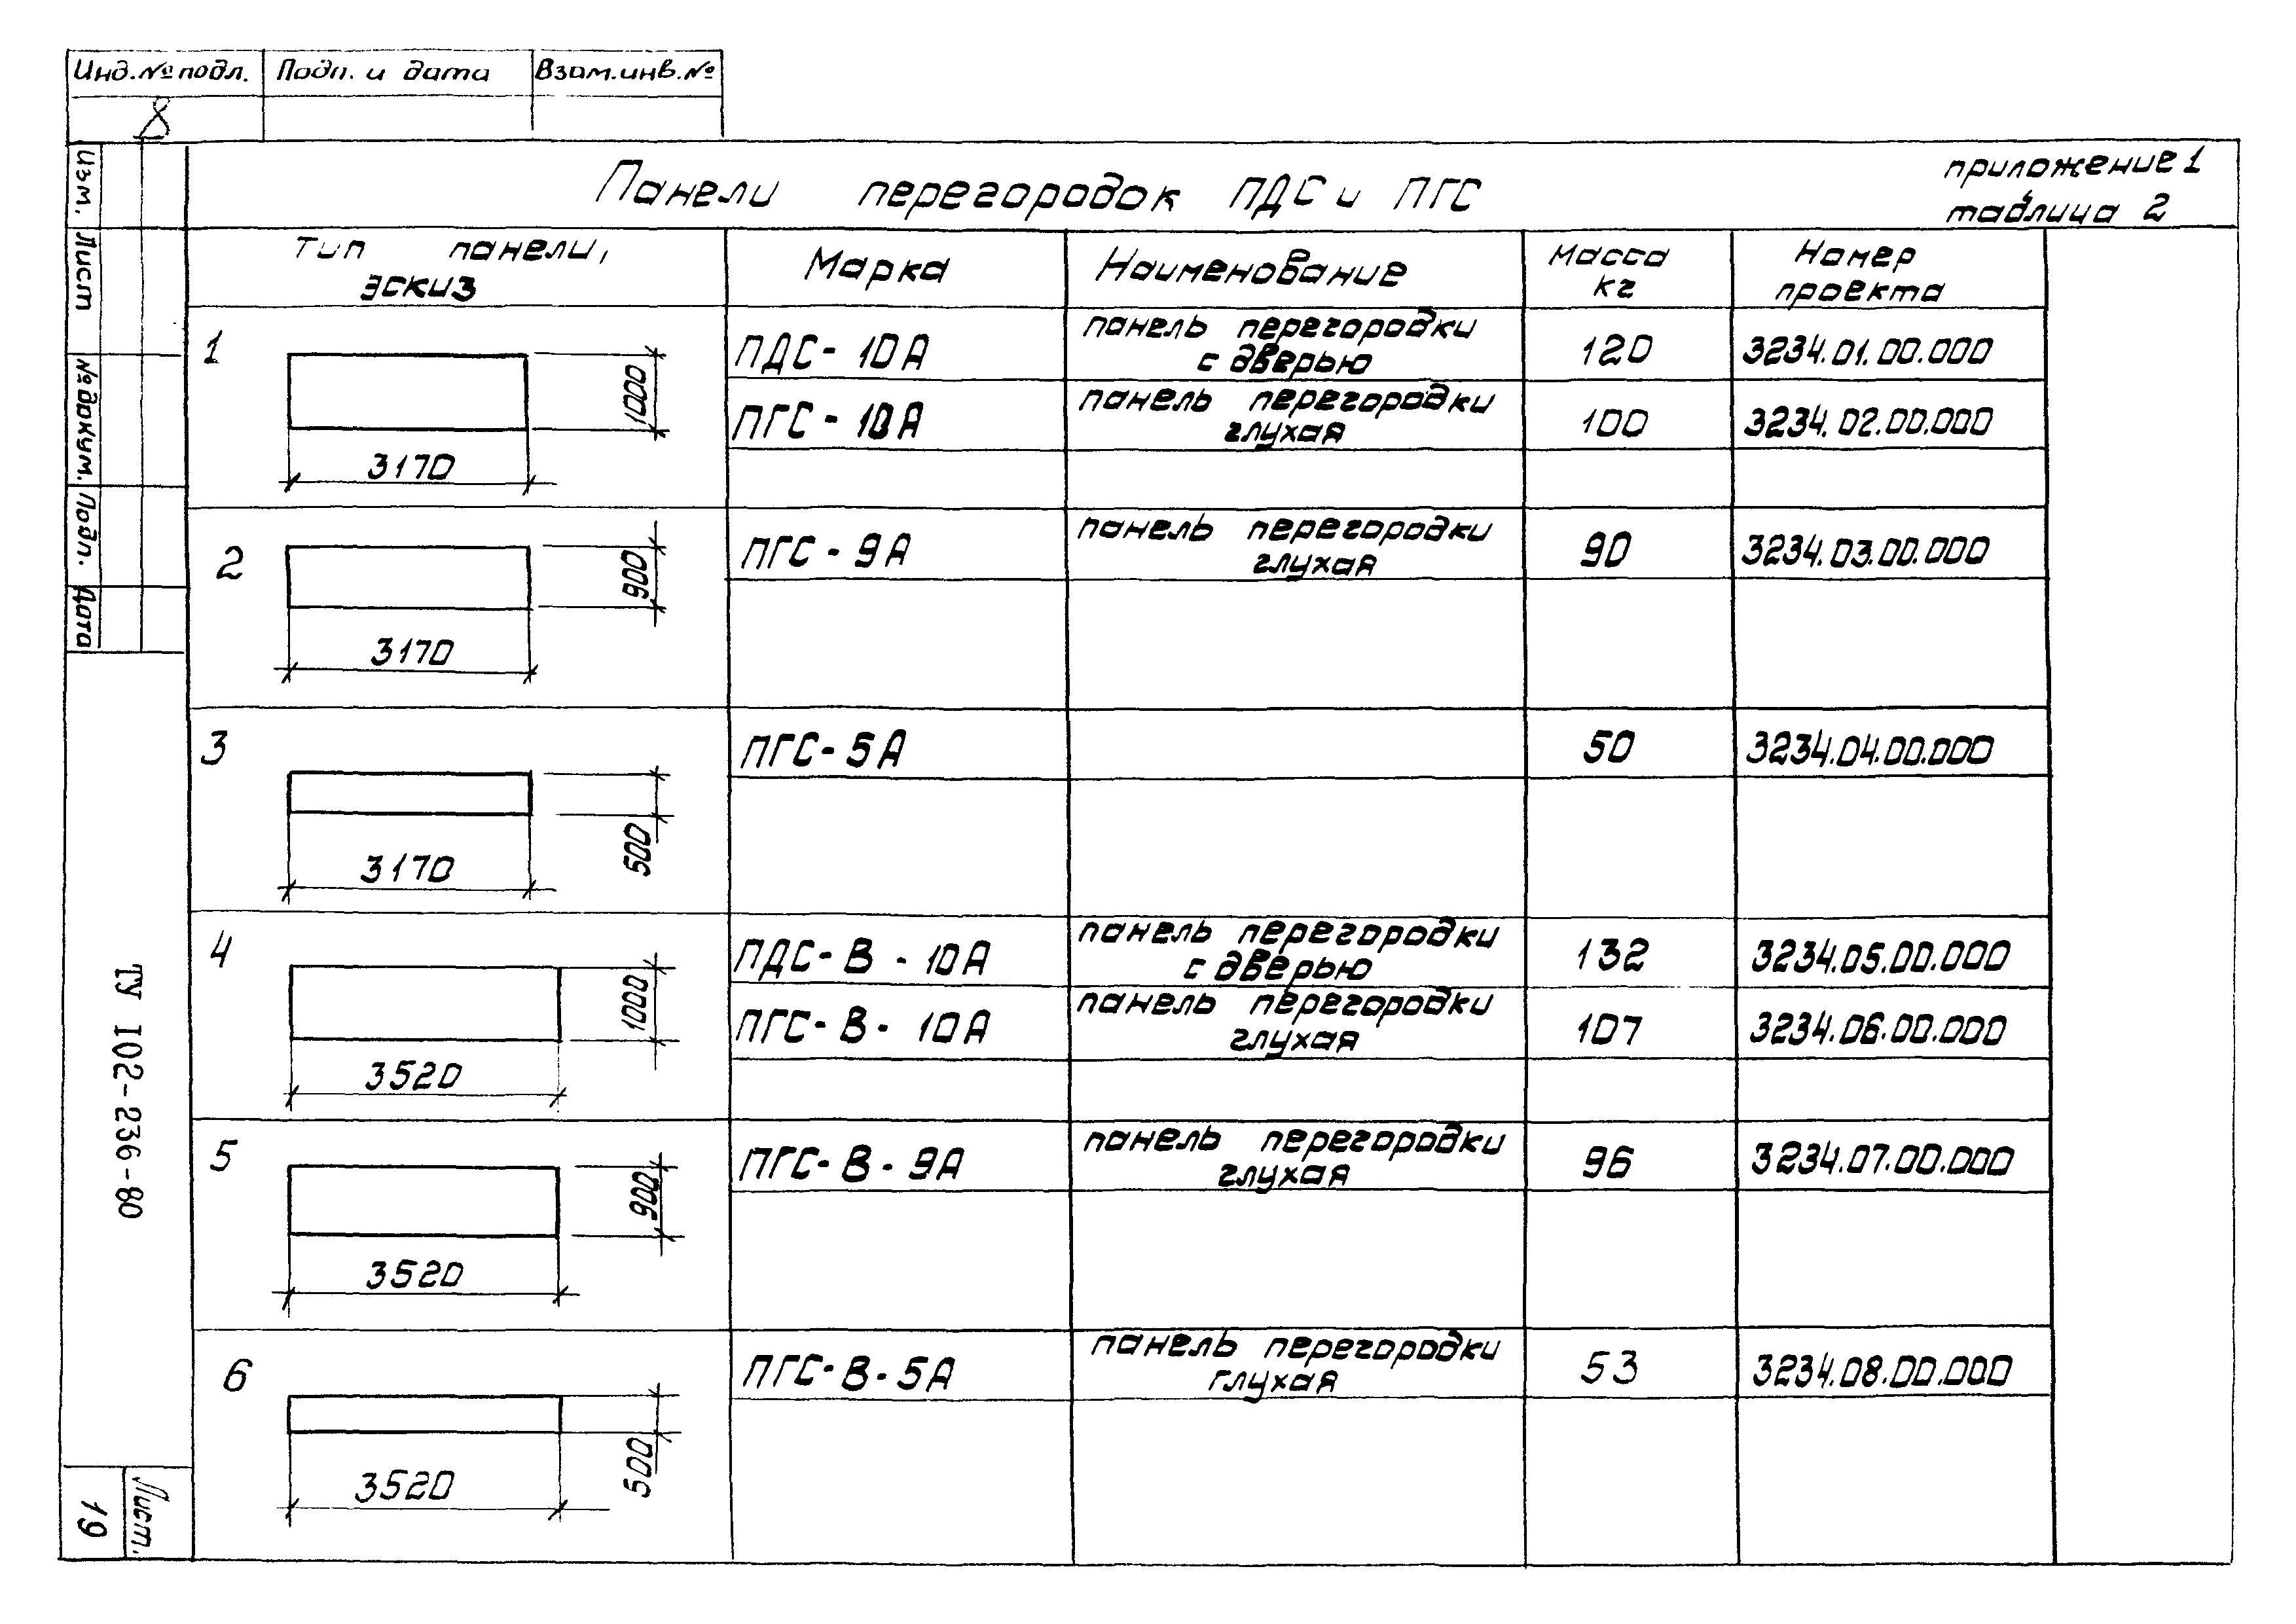 Инд.№подл. Подп. и дата Взам.инв.№
8
Изм. Лист №докум. Подп. Дата
Панели перегородок ПДС и ПГС
приложение 1
таблица 2
Тип панели, эскиз
Марка
Наименование
Масса кг
Номер проекта
1
1000
3170
ПДС-10А панель перегородки с дверью 120 3234.01.00.000
ПГС-10А панель перегородки глухая 100 3234.02.00.000
2
900
3170
ПГС-9А панель перегородки глухая 90 3234.03.00.000
3
500
3170
ПГС-5А 50 3234.04.00.000
4
1000
3520
ПДС-В-10А панель перегородки с дверью 132 3234.05.00.000
ПГС-В-10А панель перегородки глухая 107 3234.06.00.000
5
900
3520
ПГС-В-9А панель перегородки глухая 96 3234.07.00.000
6
500
3520
ПГС-В-5А панель перегородки глухая 53 3234.08.00.000
ТУ 102-236-80
Лист.
19